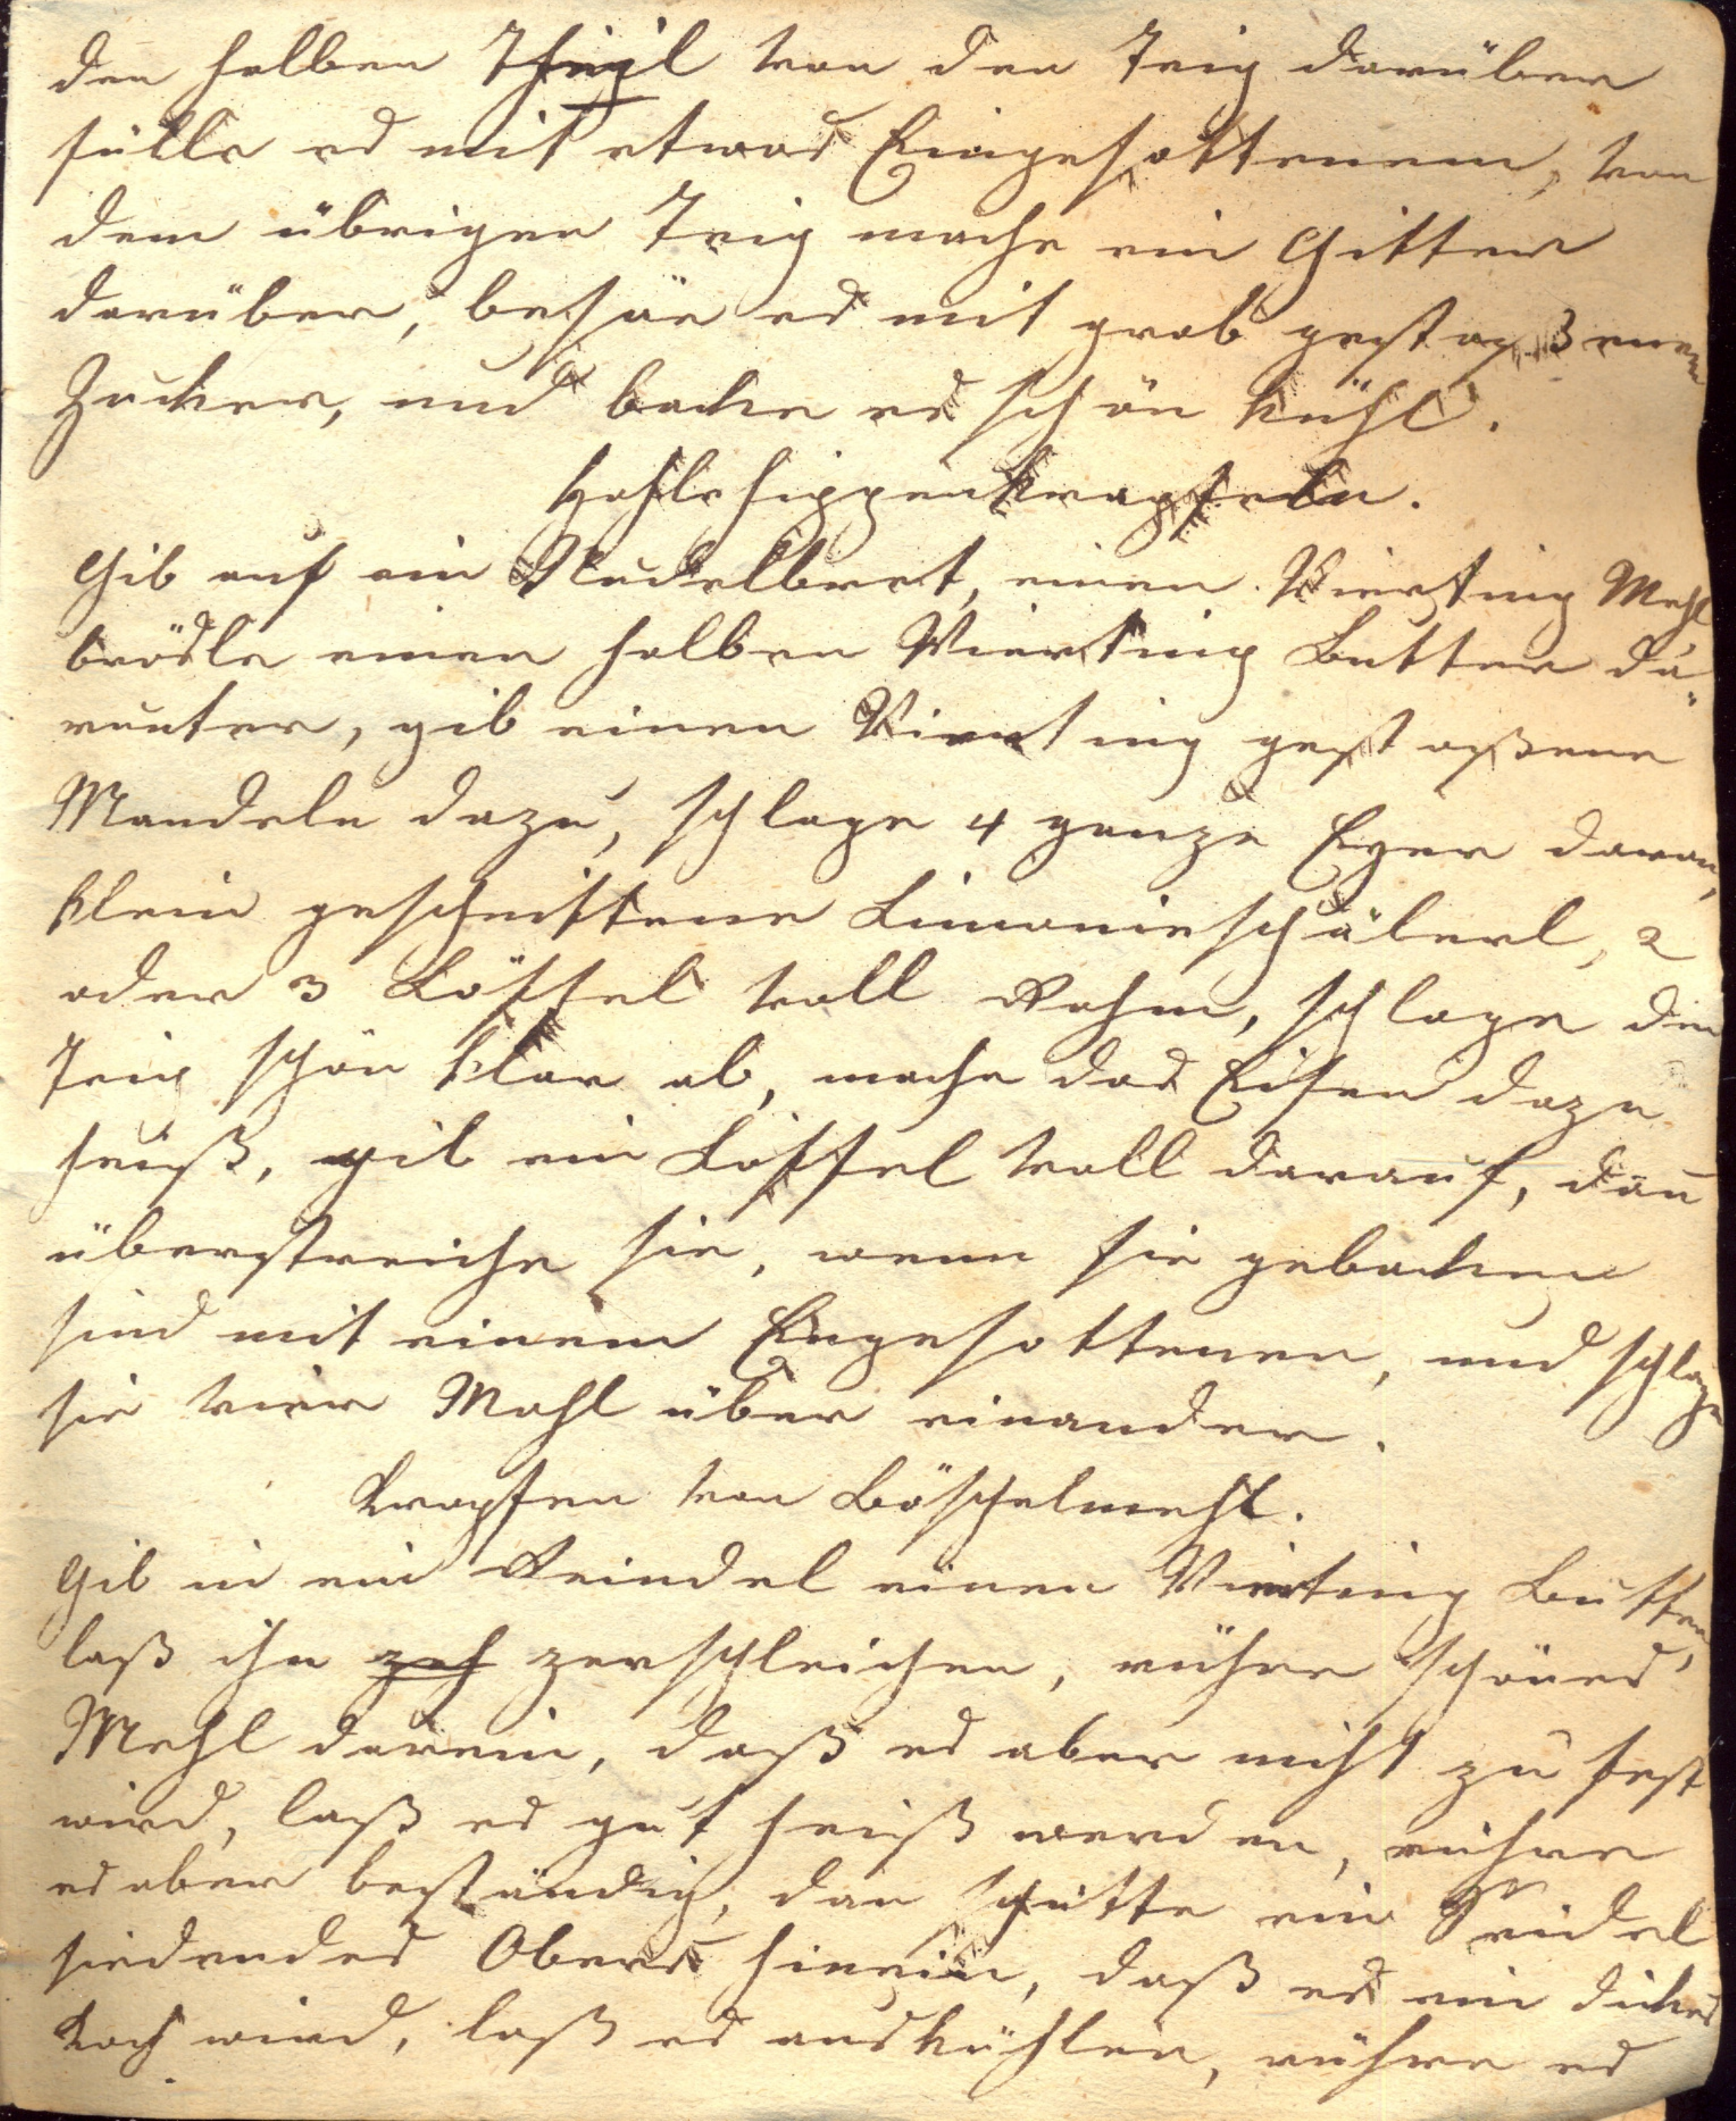 den halben Theil von den Teig darüber
fülle es mit etwas Eingesottenem, von
dem übrigen Teig mache ein Gitter
darüber, besäe es mit grob gestoßenen
Zucker, und backe es schön kühl.
Hohlehippenkrapfeln.
Gib auf ein Nudelbret, einen Vierting Mehl
brösle einen halben Vierting Butter da-
runter, gib einen Vierting gestoßene
Mandeln dazu, schlage 4 ganze Eyer daran,
klein geschnittene Limonieschälerl, 2
oder 3 Löffel voll Rahm, schlage den
Teig schön klar ab, mache das Eisen dazu
heiß, gib ein Löffel voll darauf, dan
überstreiche sie, wenn sie gebacken
sind mit einem Eingesottenen, und schlage
sie vier Mahl über einander.
Krapfen von Böschelmehl.
Gib in ein Reindel einen Vierting Butter,
laß ihn zerschleichen, rühre schönes
Mehl darein, daß es aber nicht zu fest
wird, laß es gut heiß werden, rühre
es aber beständig, dan schütte ein Seidel
siedendes Obers hinein, daß es ein dickes
Koch wird, laß es auskühlen, rühre es